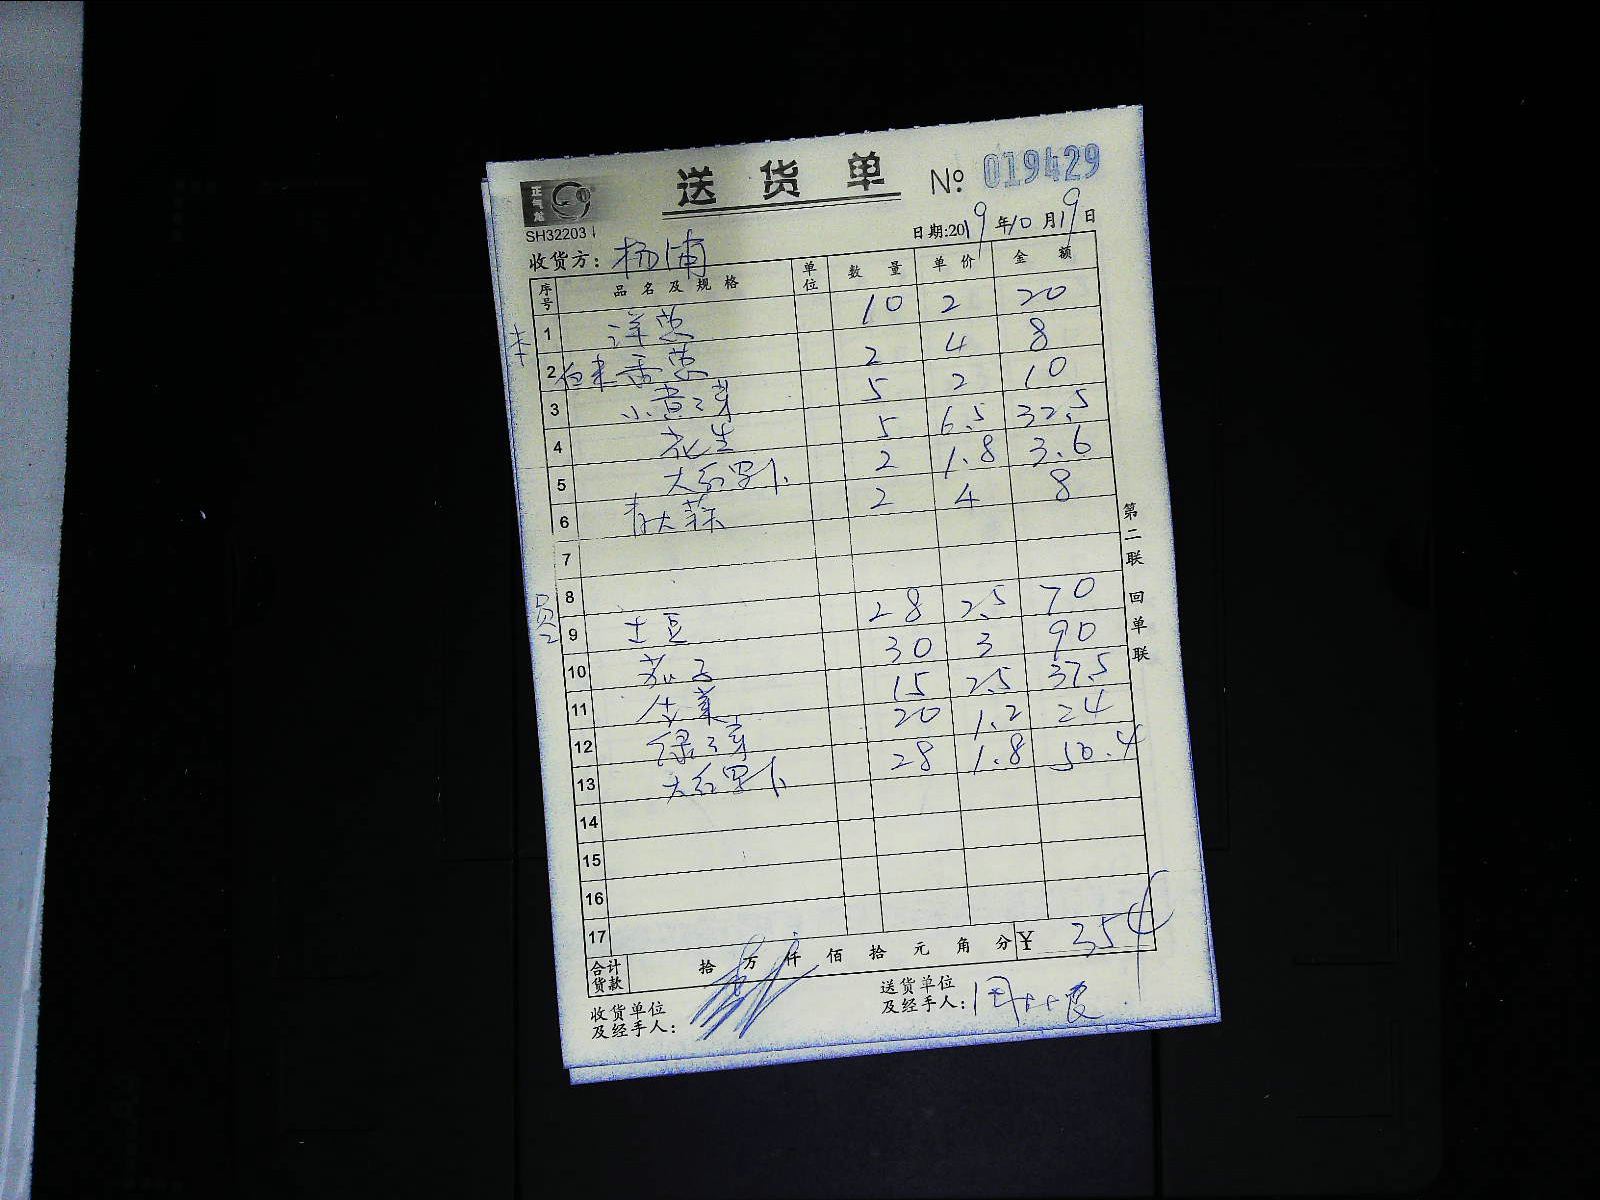 正气龙
送货单 № 019429
SH32203
日期:2019年10月19日
收货方：杨浦
序号 品名及规格 单位 数量 单价 金额
1 洋葱 10 2 20
2 香葱 2 4 8
3 小黄芽 5 2 10
4 花生 5 6.5 32.5
5 大红罗卜 2 1.8 3.6
6 2 4 8
7
8
9 土豆 28 2.5 70
10 茄子 30 3 90
11 生菜 15 2.5 37.5
12 绿芽 20 1.2 24
13 大红罗卜 28 1.8 50.4
14
15
16
17
合计货款 拾 万 仟 佰 拾 元 角 分 ¥ 354
收货单位及经手人：
送货单位及经手人：周
第二联 回单联